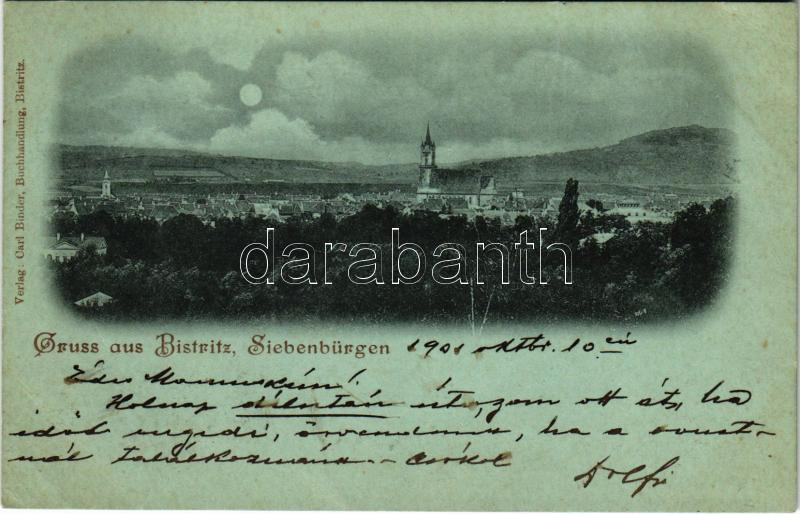 Verlag: Carl Binder, Buchhandlung, Bistritz.
darabanth
Gruss aus Bistritz, Siebenbürgen 1901 oktbr. 10 én
Édes Mamuskám!
Holnap délután utazom ott át, ha
időd engedi, örvendenék, ha a vonat-
nál találkoznánk. – Csókol
Dolfi